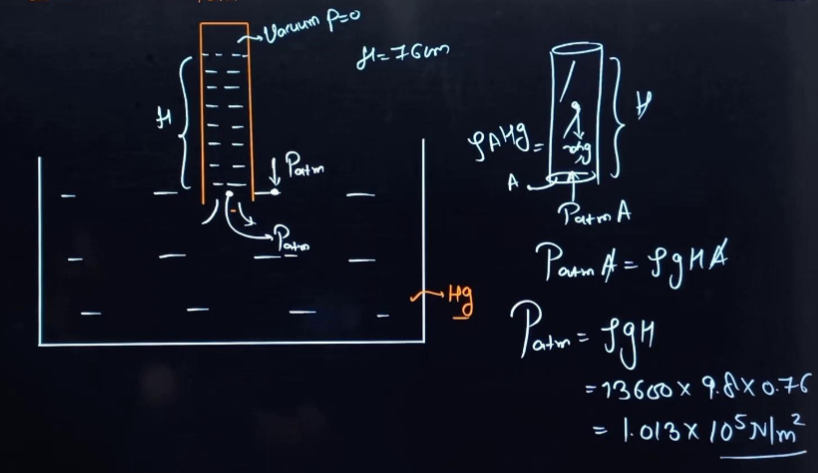 Vacuum P=0
H=76cm
H
Patm
Patm
Hg
ρAHg=
mg
H
A
Patm A
Patm A = ρgHA
Patm = ρgH
=13600×9.8×0.76
= 1.013×10⁵N/m²